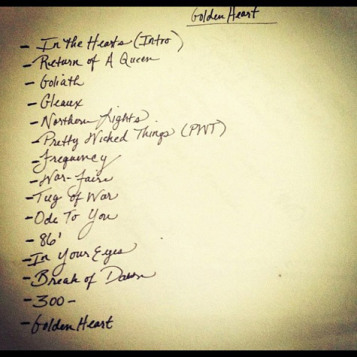 Golden Heart
- In The Hearts (Intro)
- Return of A Queen
- Goliath
- Gleaux
- Northern Lights
- Pretty Wicked Things (PWT)
- Frequency
- War-faire
- Tug of War
- Ode To You
- 86'
- In Your Eyes
- Break of Dawn
- 300 -
- Golden Heart